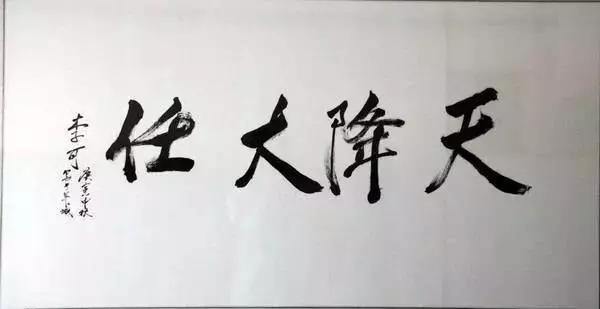 天降大任
李可
庚寅中秋